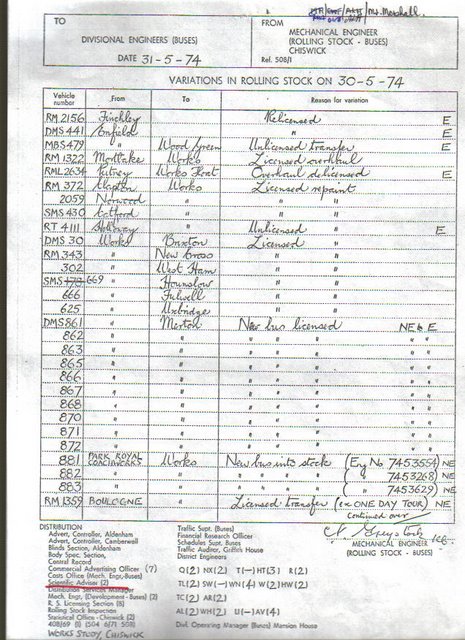 Mr. Marshall.
TO
DIVISIONAL ENGINEERS (BUSES)
DATE 31-5-74
FROM
MECHANICAL ENGINEER
(ROLLING STOCK - BUSES)
CHISWICK
Ref. 508/1
VARIATIONS IN ROLLING STOCK ON 30-5-74
Vehicle number From To Reason for variation
RM 2156 Finchley Relicensed E
DMS 441 Enfield " E
MBS 479 " Wood Green Unlicensed transfer E
RM 1322 Mortlake Works Licensed overhaul
RML 2634 Putney Works Float Overhaul delicensed E
RM 372 Clapton Works Licensed repaint
2059 Norwood " " "
SMS 430 Catford " " "
RT 4111 Holloway " Unlicensed " E
DMS 30 Works Brixton Licensed "
RM 343 " New Cross " "
302 " West Ham " "
SMS 669 " Hounslow " "
666 " Fulwell " "
625 " Uxbridge " "
DMS 861 " Merton New bus licensed NE & E
862 " " " " " " "
863 " " " " " " "
865 " " " " " " "
866 " " " " " " "
867 " " " " " " "
868 " " " " " " "
870 " " " " " " "
871 " " " " " " "
872 " " " " " " "
881 PARK ROYAL COACHWORKS Works New bus into stock (Eng No 7453554) NE
882 " " " " " ( " 7453268) NE
883 " " " " " ( " 7453629) NE
RM 1359 BOULOGNE " Licensed transfer (ex ONE DAY TOUR) NE
Continued over
MECHANICAL ENGINEER
(ROLLING STOCK - BUSES)
DISTRIBUTION
Advert, Controller, Aldenham
Advert, Controller, Camberwell
Blinds Section, Aldenham
Body Spec. Section,
Central Record
Commercial Advertising Officer (7)
Costs Office (Mech. Engr, Buses)
Scientific Adviser (2)
Distribution Services Manager
Mech. Engr, (Development - Buses) (2)
R. S. Licensing Section (8)
Rolling Stock Inspection
Statistical Office - Chiswick (2)
408/69 (1) (504 6/71 508)
WORKS STUDY, CHISWICK
Traffic Supt. (Buses)
Financial Research Officer
Schedules Supt. Buses
Traffic Auditor, Griffith House
District Engineers
Q(2) NX(2) T(-) HT(3) R(2)
TL(2) SW(-) WN(4) W(2) HW(2)
TC(2) AR(2)
AL(2) WH(2) U(-) AV(4)
Divl. Operating Manager (Buses) Mansion House